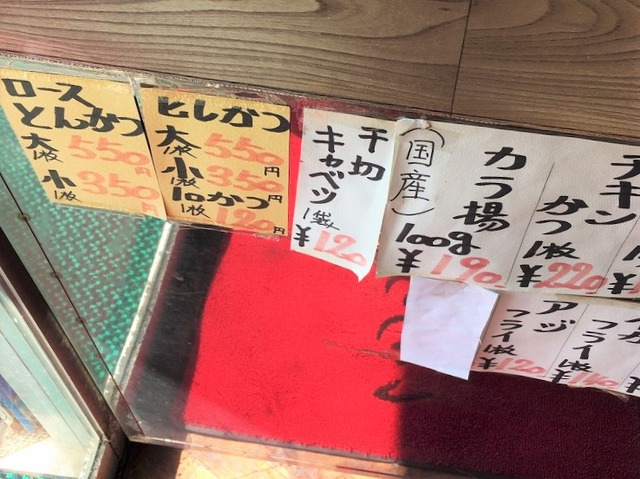 ロース
とんかつ
大 550円
1枚
小 350円
1枚
ヒレかつ
大 550円
1枚
小 350円
1枚
1口かつ
1枚 120円
千切
キャベツ
1袋
¥120
(国産)
カラ揚
100g
¥190
チキン
かつ
1枚
¥220
フライ1枚
¥120
アジ
フライ1枚
¥140